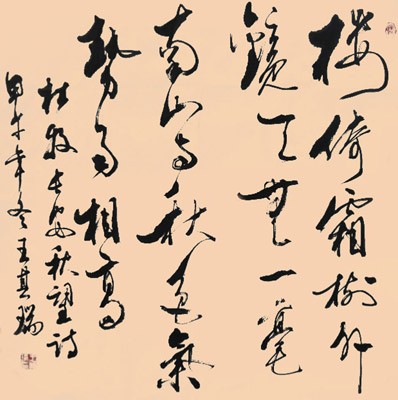 樓倚霜樹外
鏡天無一毫
南山与秋色氣
勢兩相高
杜牧長安秋望詩
甲午年冬王其瑞